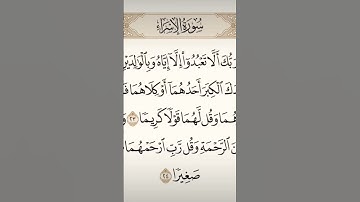 سُورَةُ الإِسْرَاءِ
رَبُّكَ أَلَّا تَعْبُدُوٓا۟ إِلَّآ إِيَّاهُ وَبِٱلْوَٰلِدَيْنِ
ٱلْكِبَرَ أَحَدُهُمَآ أَوْ كِلَاهُمَا
وَقُل لَّهُمَا قَوْلًا كَرِيمًا ٢٣
ٱلرَّحْمَةِ وَقُل رَّبِّ ٱرْحَمْهُمَا
صَغِيرًا ٢٤